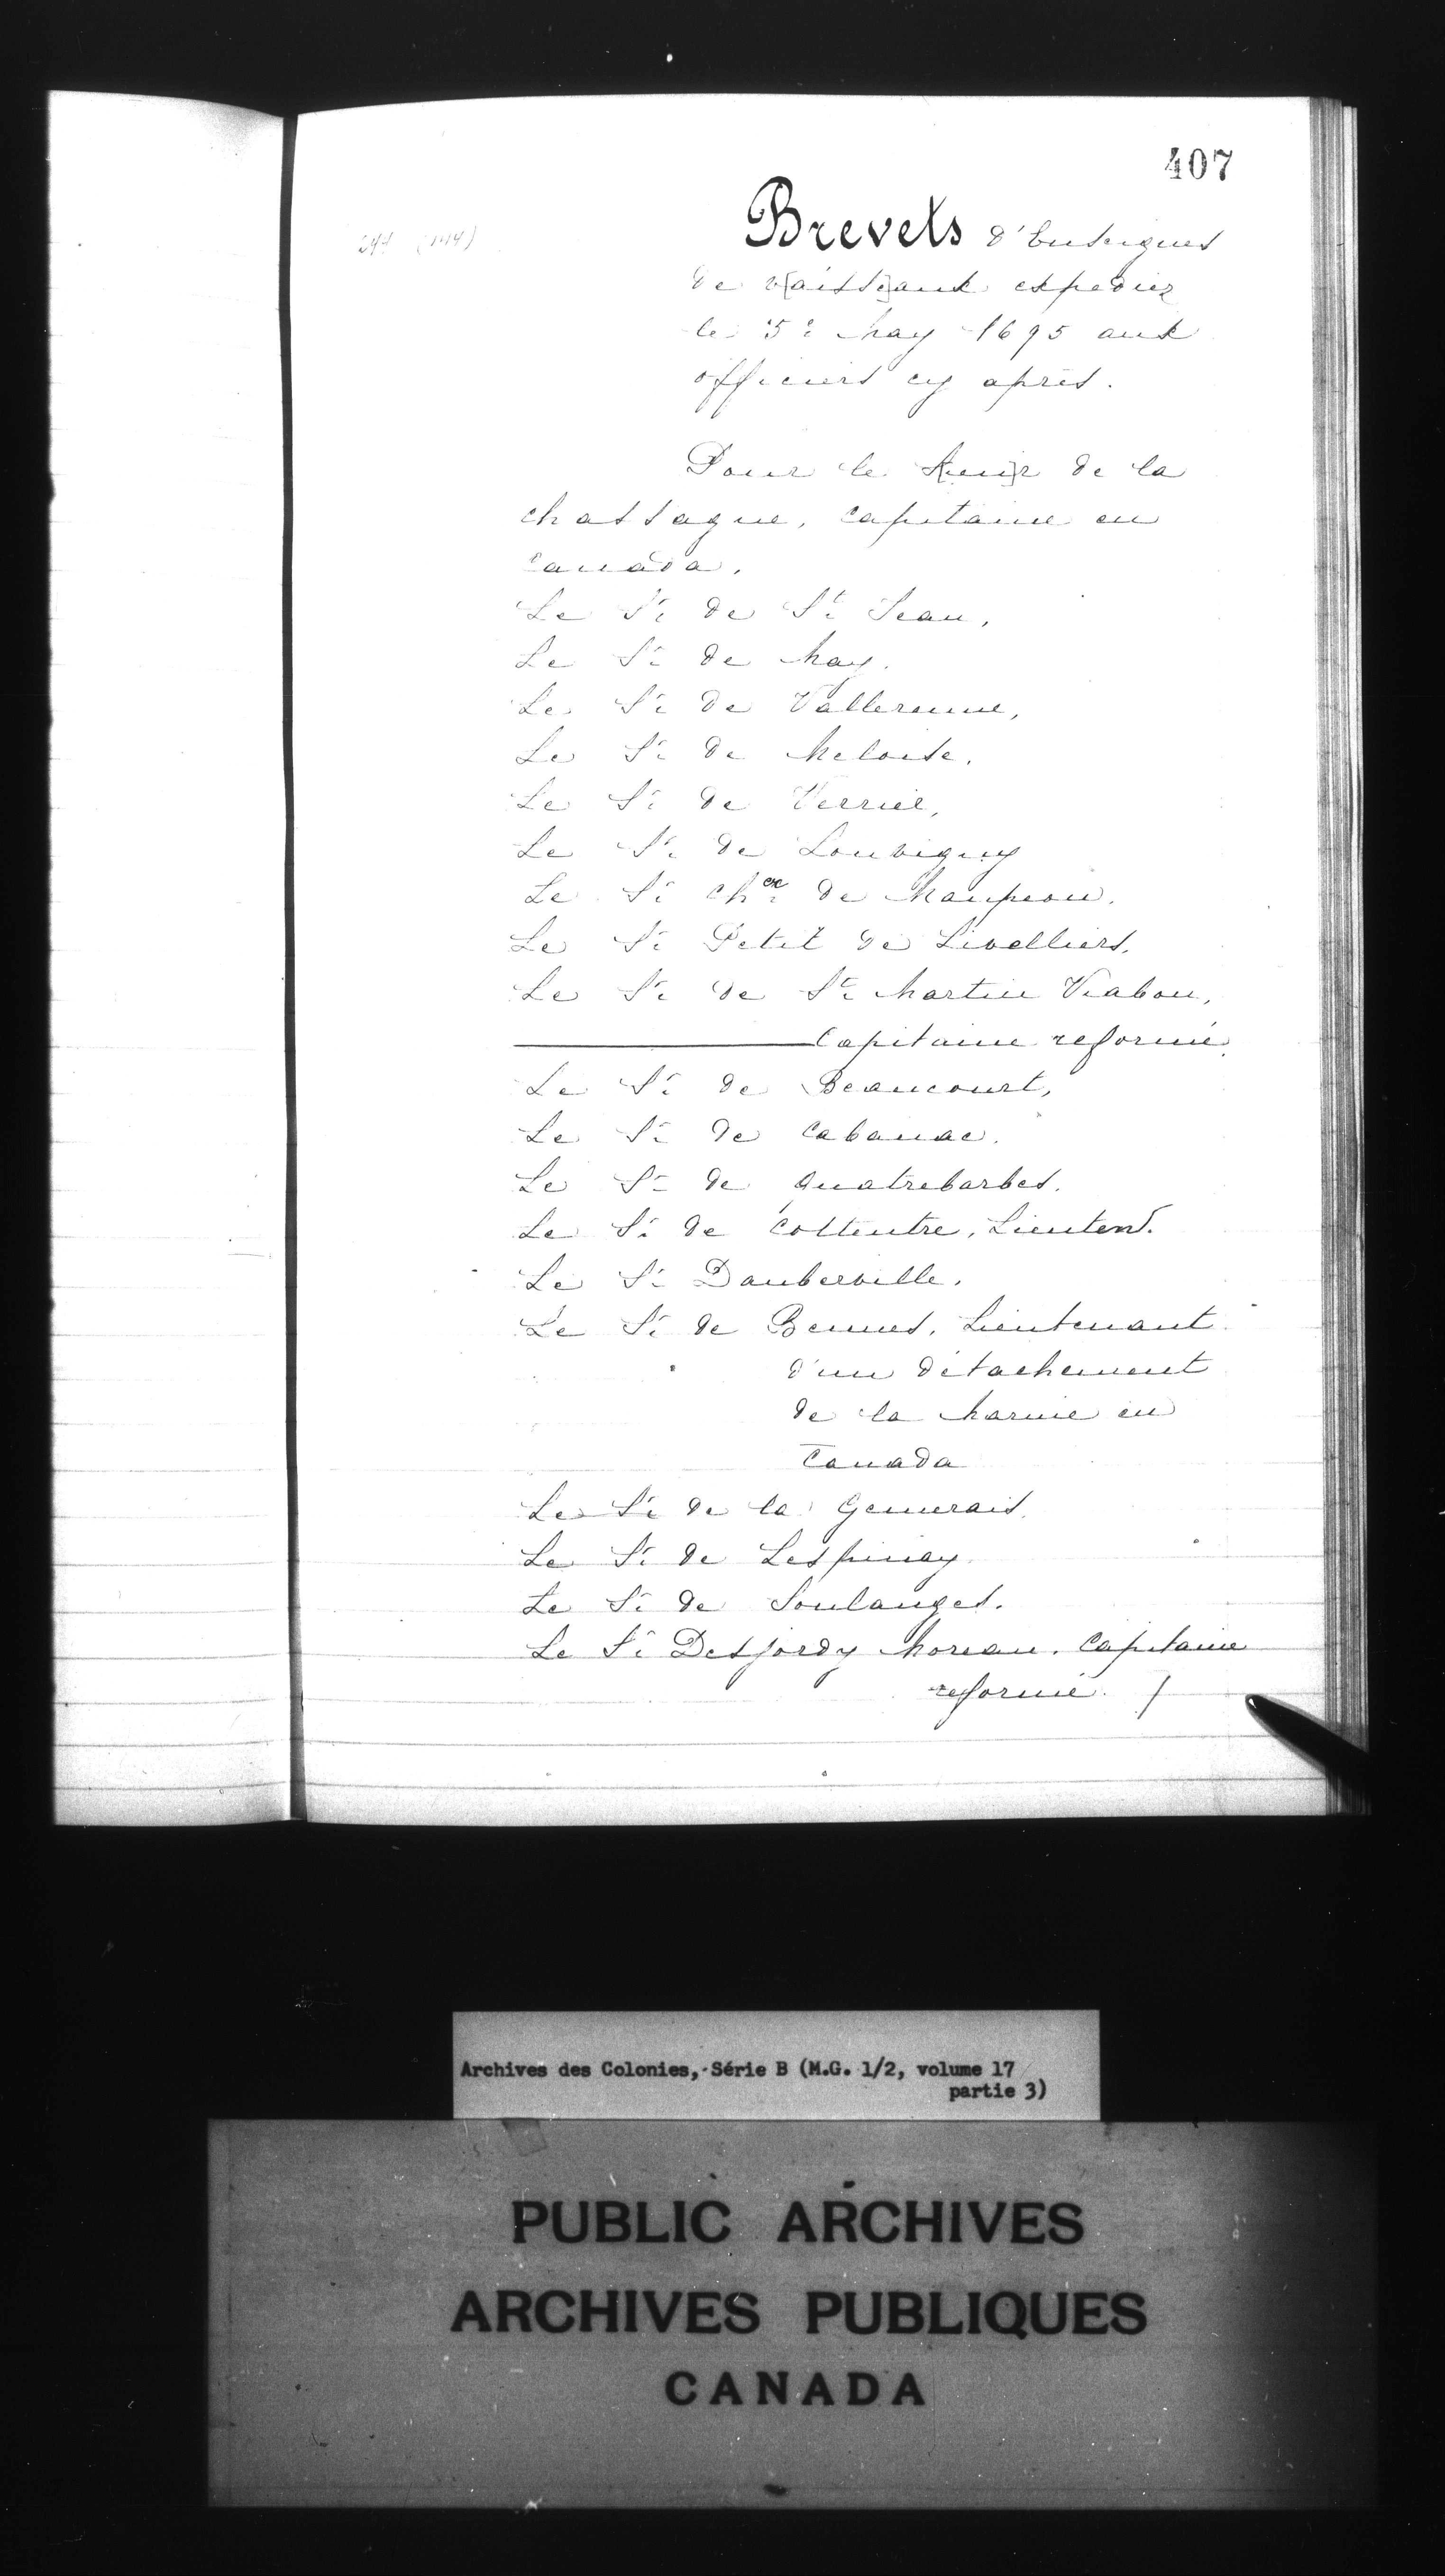 407
(144)
Brevets d'Enseignes
de v[aisse]aux expediez
le 5e May 1695 aux
officiers cy après.
Pour le S[ieu]r de la
chassagne, capitaine en
Canada.
Le Sr de St Jean,
Le Sr de May.
Le Sr de Vallerenne,
Le Sr de Meloise.
Le Sr de Verrier,
Le Sr de Louvigny
Le Sr Cher de Maupeou.
Le Sr Petit de Livelliers.
Le Sr de St Martin Viabon,
Capitaine reformé.
Le Sr de Beaucourt,
Le Sr de Cabanac.
Le Sr de Quatrebarbes.
Le Sr de Cottentre, Lieutent.
Le Sr Dauberville.
Le Sr de Bennes, Lieutenant
d'un détachement
de la Marine en
Canada
Le Sr de la Gemerais.
Le Sr de Lespinay.
Le Sr de Soulanges.
Le Sr Desjordy Moreau. Capitaine
reformé. /
Archives des Colonies, Série B (M.G. 1/2, volume 17
partie 3)
PUBLIC ARCHIVES
ARCHIVES PUBLIQUES
CANADA